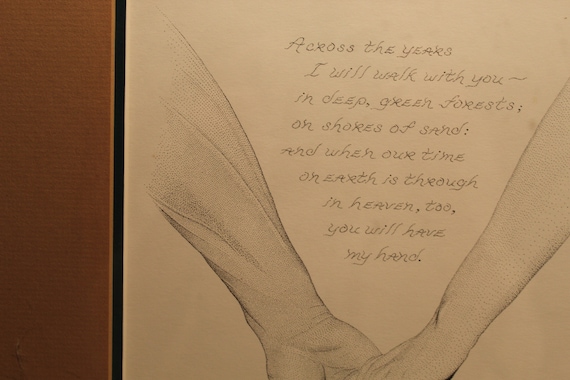 Across the years
I will walk with you~
in deep, green forests;
on shores of sand:
and when our time
on earth is through
in heaven, too,
you will have
my hand.